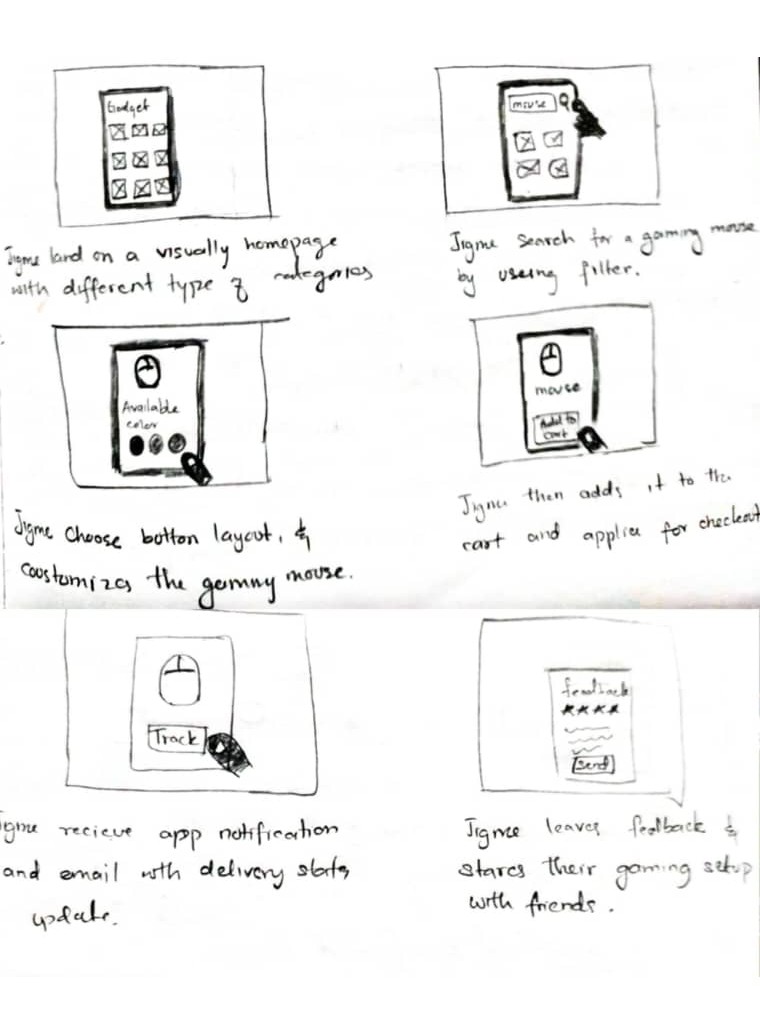 Gadget
Jigme land on a visually homepage
with different type of categories
mouse
Jigme search for a gaming mouse
by useing filter.
Available
color
Jigme choose botton layout, &
coustomizes the gaming mouse.
mouse
Add to
cart
Jigme then adds it to the
cart and applies for checkout
Track
Jigme recieve app notification
and email with delivery status
update.
feedback
send
Jigme leaves feedback &
stares their gaming setup
with friends.